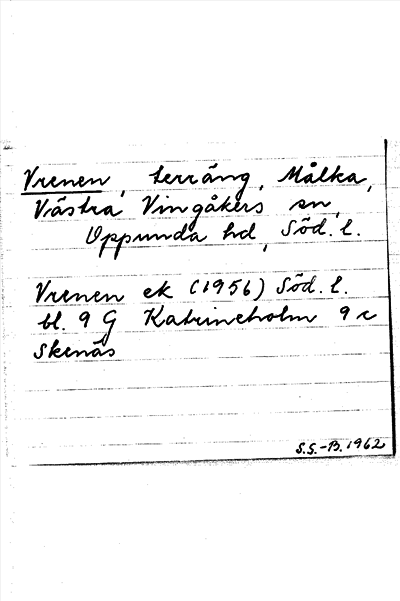 Vrenen, terräng, Målka,
Västra Vingåkers sn,
Oppunda hd, Söd. l.
Vrenen ek (1956) Söd. l.
bl. 9 G Katrineholm 9 c
Skenäs
S.S.-B. 1962